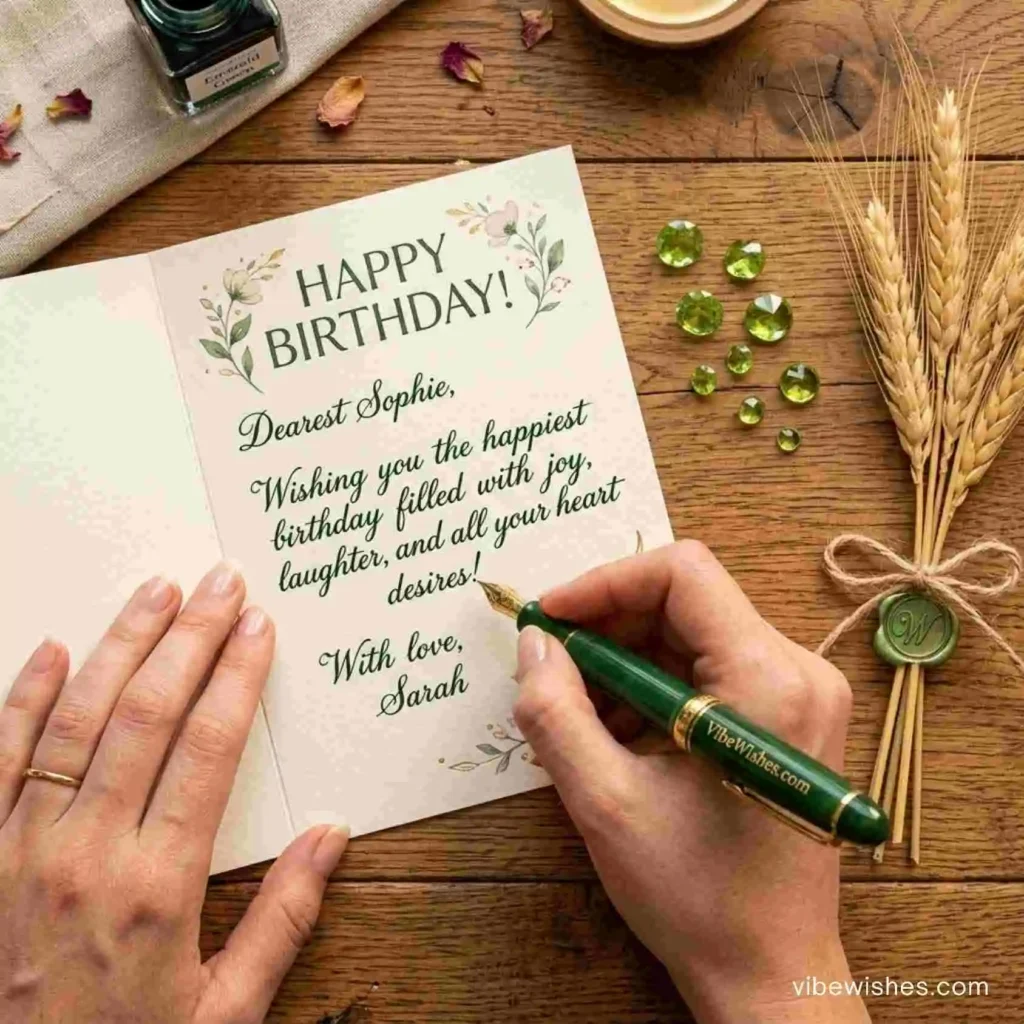 Emerald
Green
HAPPY
BIRTHDAY!
Dearest Sophie,
Wishing you the happiest
birthday filled with joy,
laughter, and all your heart
desires!
With love,
Sarah
VibeWishes.com
W
vibewishes.com